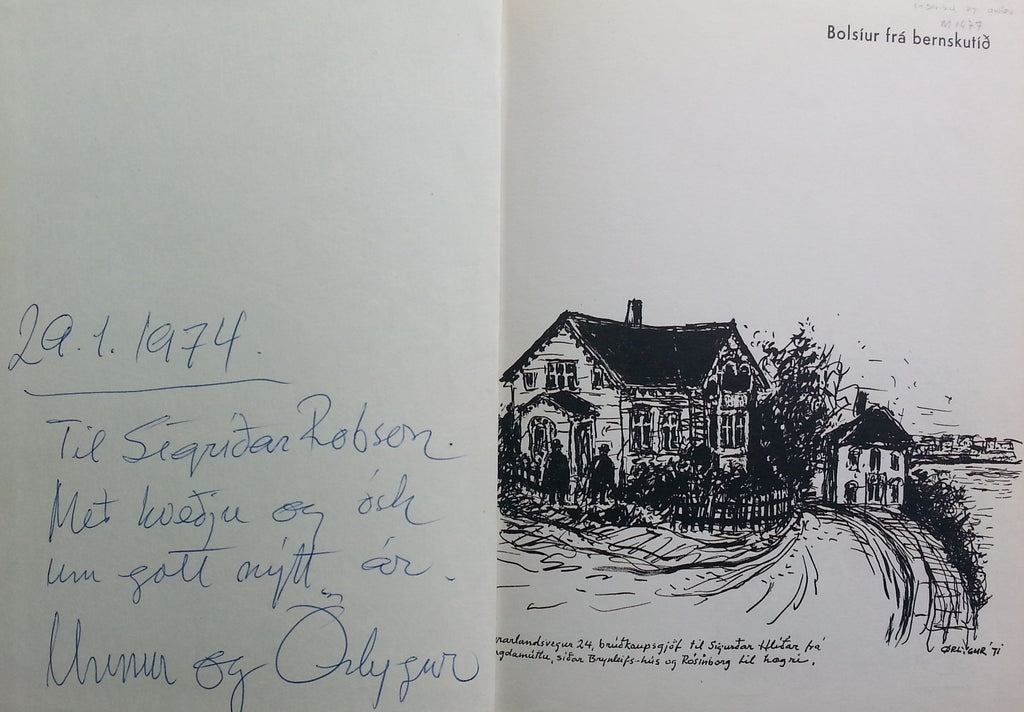 29.1.1974.
Til Sigríðar Robson.
Með kveðju og ósk
um gott nýtt ár.
Unnur og Örlygur
inscribed by author
M1477
Bolsíur frá bernskutíð
rarlandsvegur 24, brúðkaupsgjöf til Sigurðar Hlíðar frá
ngdamúttu, síðar Brynleifs-hús og Rósinborg til hægri.
ØRLYGUR '71